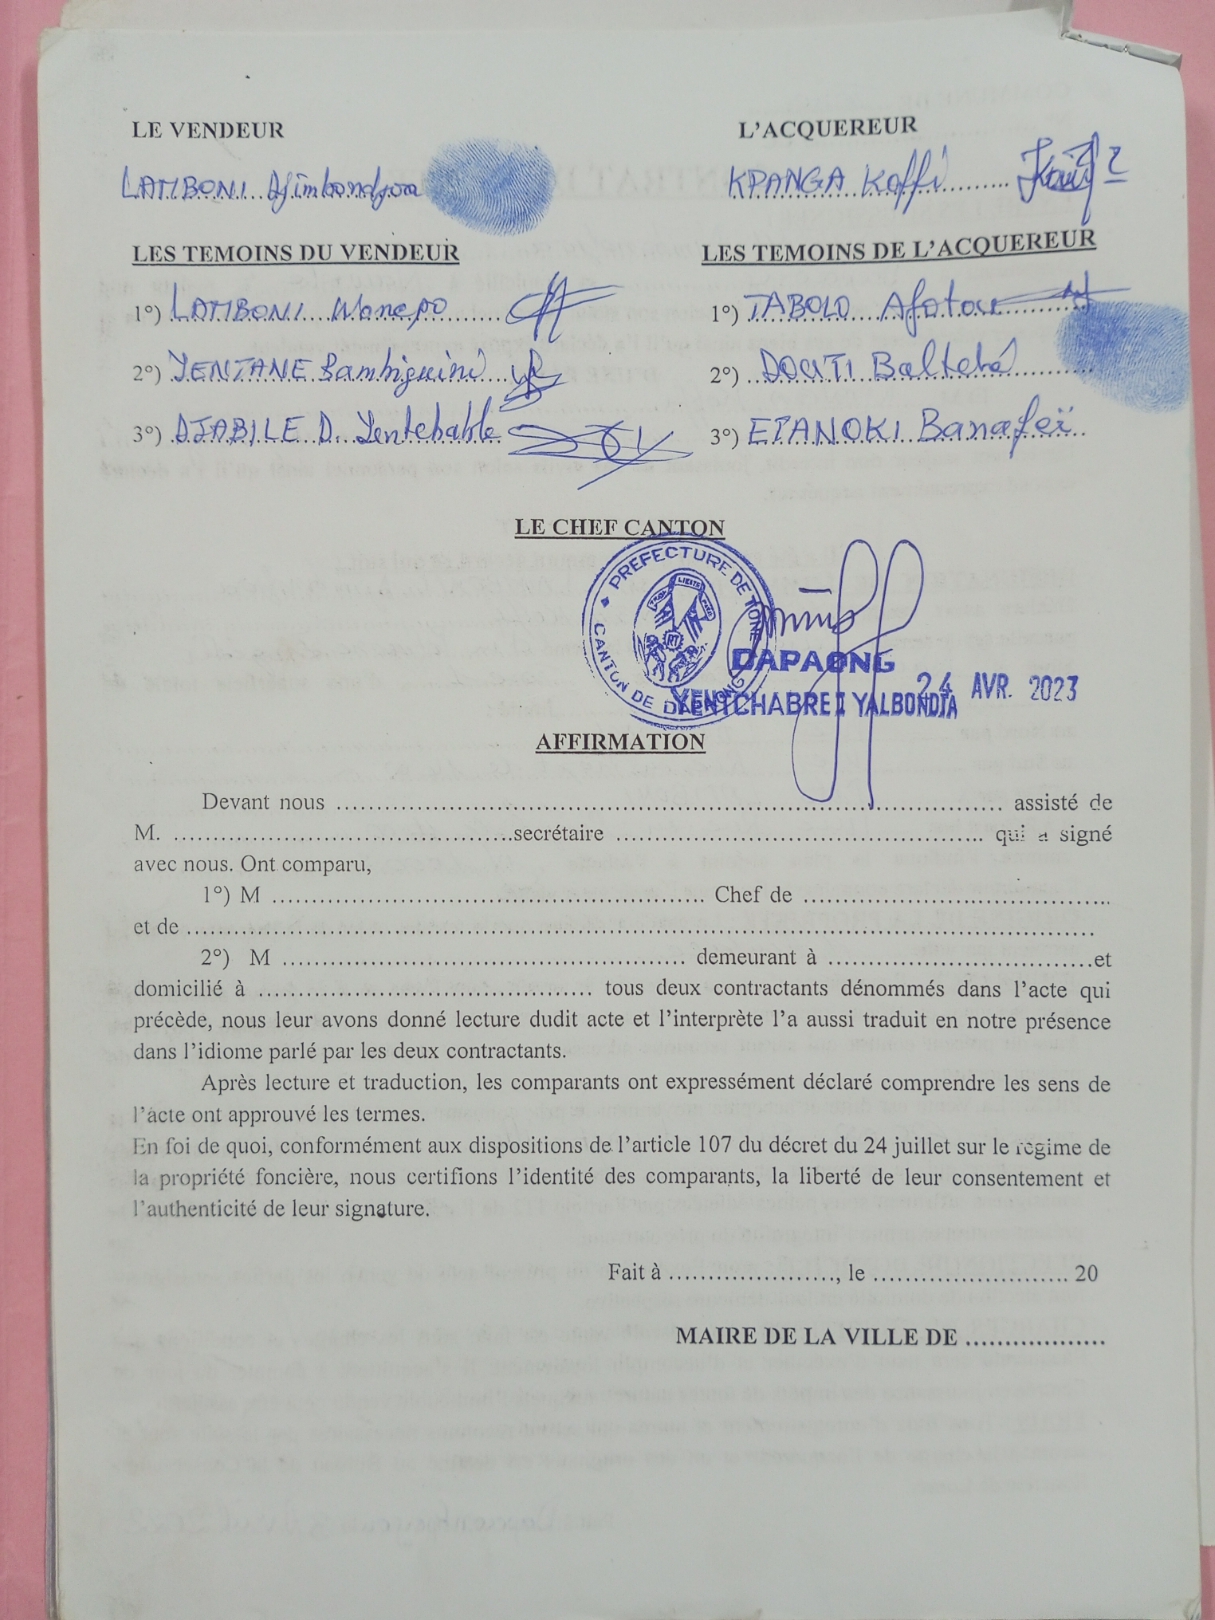 LE VENDEUR L'ACQUEREUR
LAMBONI Djimbondjoa KPANGA Koffi
LES TEMOINS DU VENDEUR LES TEMOINS DE L'ACQUEREUR
1°) LAMBONI Wanepo 1°) TABOLO Afotou
2°) YENTANE Bambiguini 2°) DOUTI Baltébé
3°) DJABILE D. Yentchable 3°) ETANOKI Banafeï
LE CHEF CANTON
PREFECTURE DE TONE
LIBERTE
RT
CANTON DE DAPAONG
DAPAONG
24 AVR. 2023
YENTCHABRE II YALBONDJA
AFFIRMATION
Devant nous ........................................ assisté de
M. ........................................secrétaire ........................................ qui a signé
avec nous. Ont comparu,
1°) M ........................................ Chef de ........................................
et de ........................................
2°) M ........................................ demeurant à ........................................et
domicilié à ........................................ tous deux contractants dénommés dans l'acte qui
précède, nous leur avons donné lecture dudit acte et l'interprète l'a aussi traduit en notre présence
dans l'idiome parlé par les deux contractants.
Après lecture et traduction, les comparants ont expressément déclaré comprendre les sens de
l'acte ont approuvé les termes.
En foi de quoi, conformément aux dispositions de l'article 107 du décret du 24 juillet sur le régime de
la propriété foncière, nous certifions l'identité des comparants, la liberté de leur consentement et
l'authenticité de leur signature.
Fait à ...................., le ........................ 20
MAIRE DE LA VILLE DE ..................